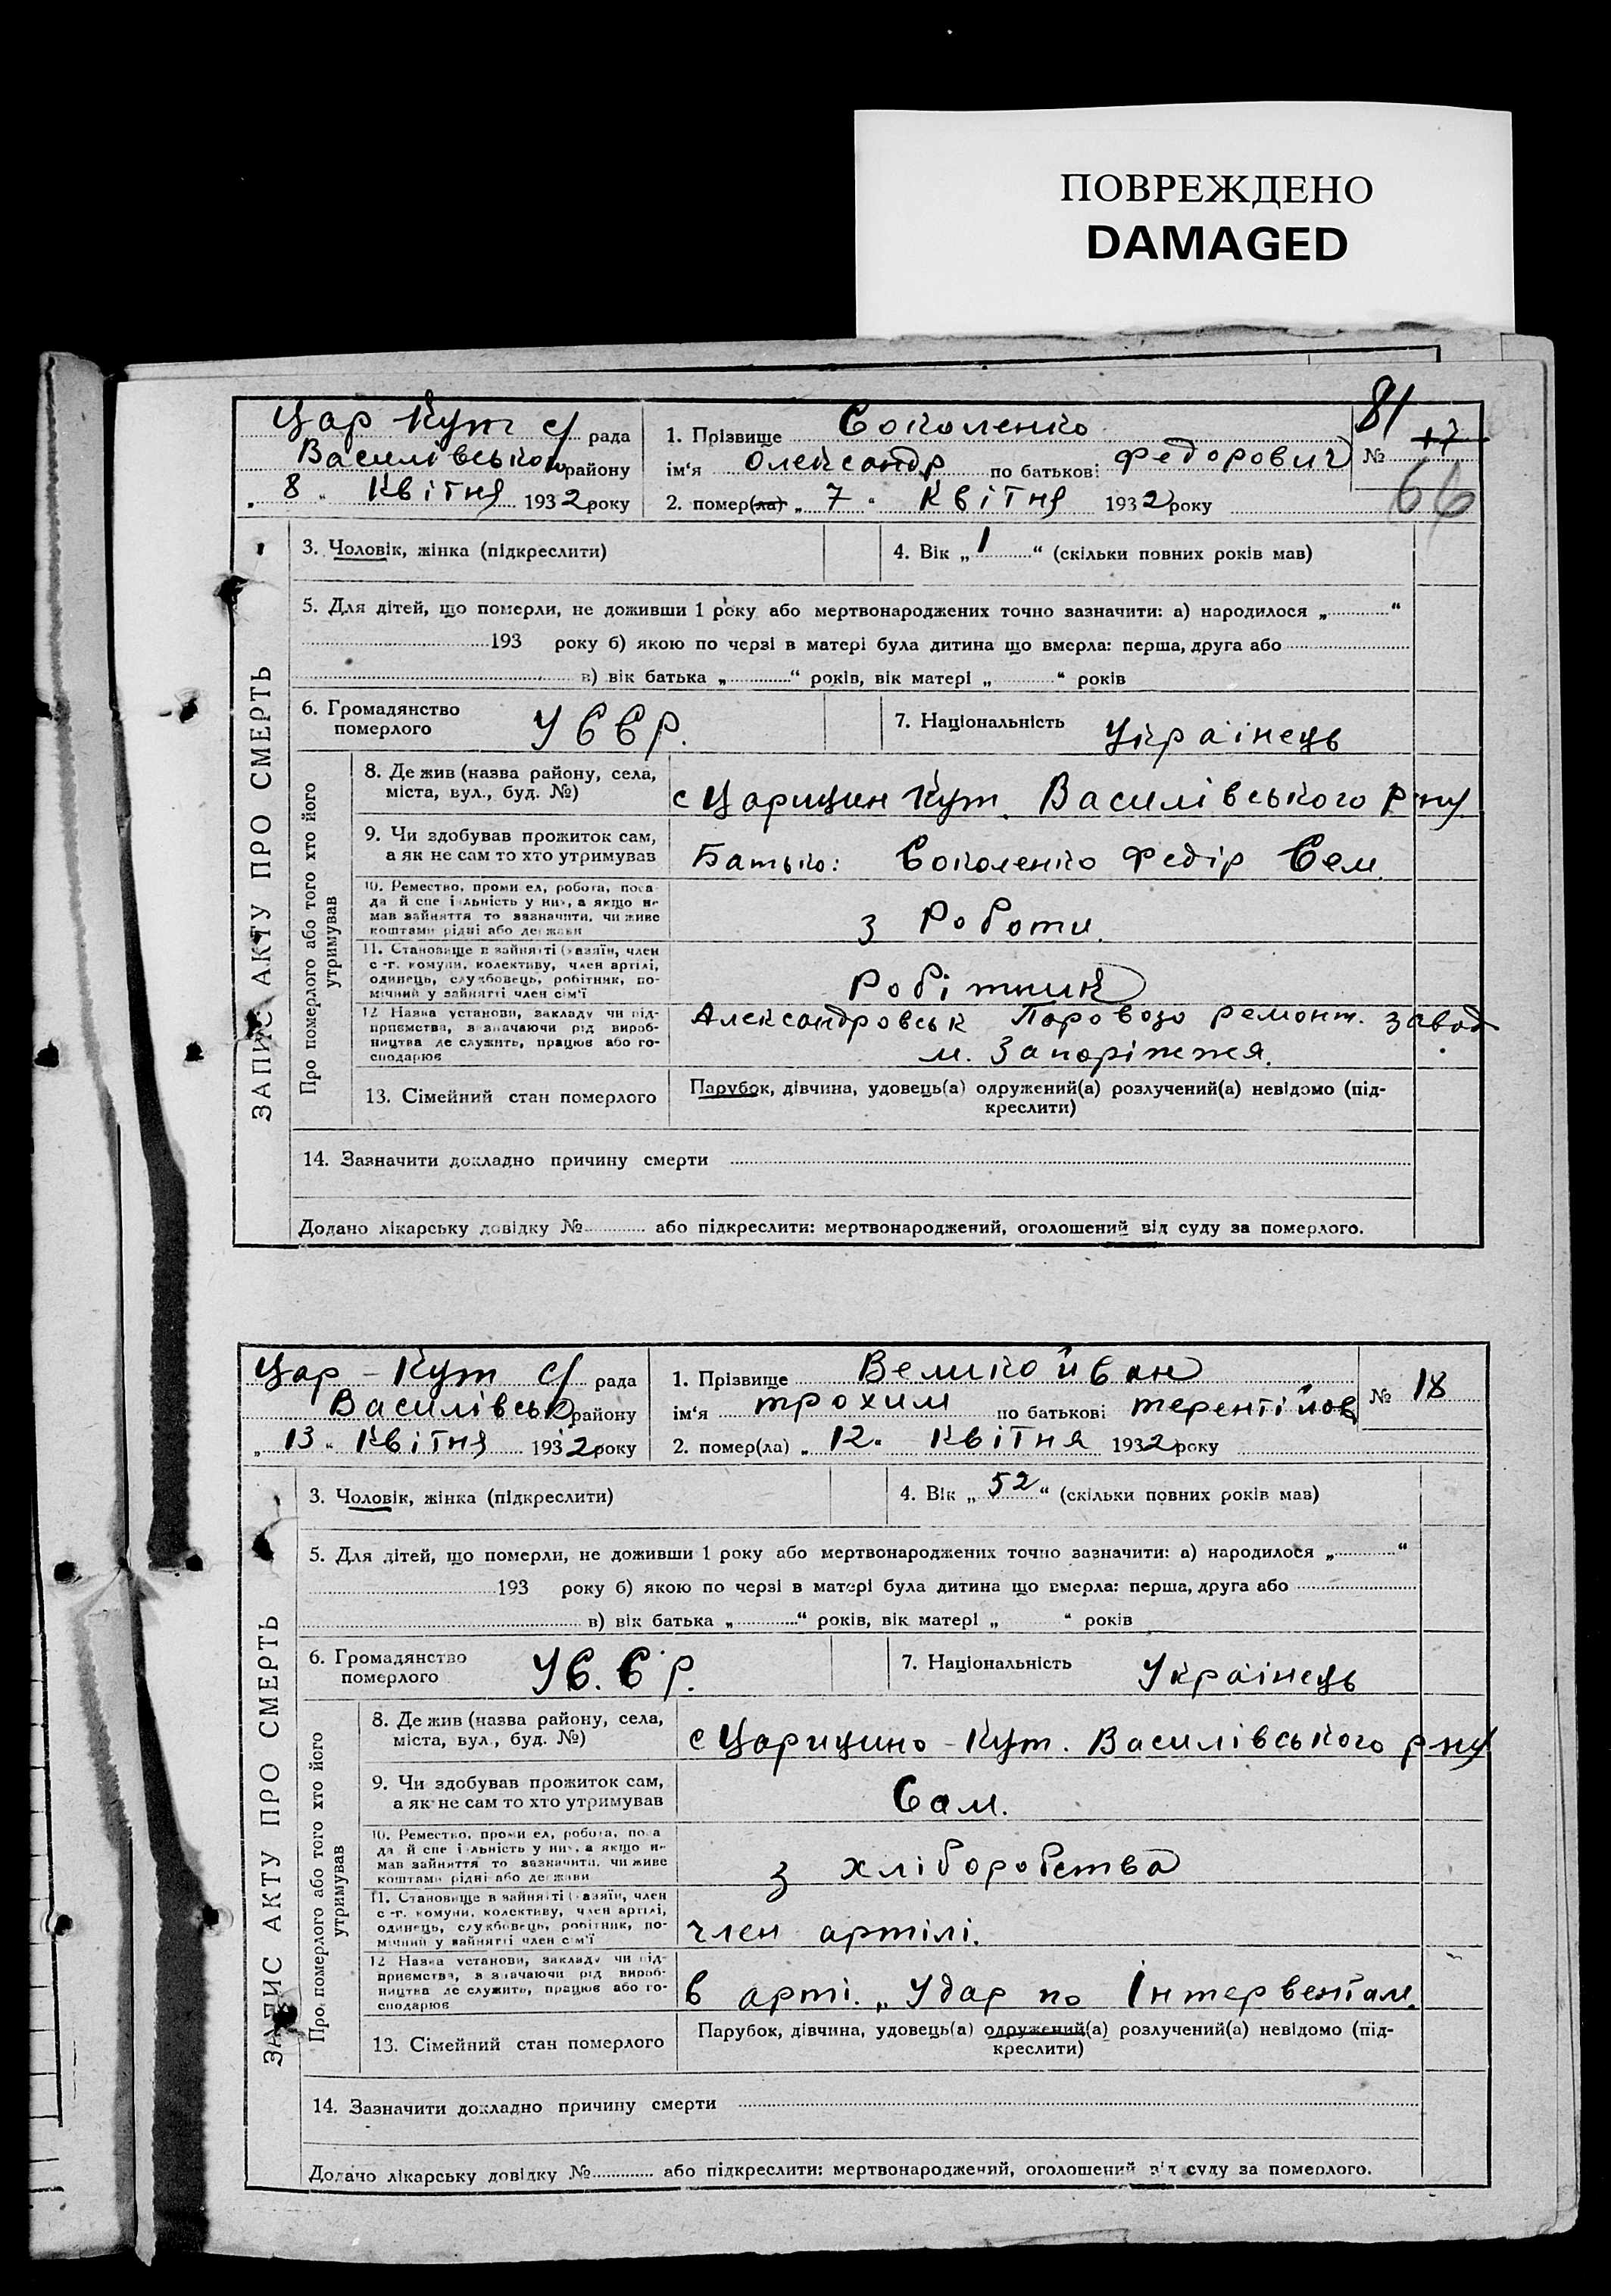 ПОВРЕЖДЕНО
DAMAGED
81
Цар Кут с/ рада
Василівського району
„ 8 „ Квітня 1932 року
1. Прізвище Соколенко
ім‘я Олександр по батькові Федорович
2. помер(ла) „ 7 “ Квітня 1932 року
№ 17
66
ЗАПИС АКТУ ПРО СМЕРТЬ
3. Чоловік, жінка (підкреслити)
4. Вік „ 1 “ (скільки повних років мав)
5. Для дітей, що померли, не доживши 1 року або мертвонароджених точно зазначити: а) народилося „ “
193 року б) якою по черзі в матері була дитина що вмерла: перша, друга або
в) вік батька „ “ років, вік матері „ “ років
6. Громадянство
померлого
УССР.
7. Національність Українець
Про померлого або того хто його
утримував
8. Де жив (назва району, села,
міста, вул., буд. №)
с Царицин Кут. Василівського р-ну
9. Чи здобував прожиток сам,
а як не сам то хто утримував
Батько: Соколенко Федір Сем.
10. Ремество, проми ел, робота, поса-
да й спе і льність у них, а якщо не
мав зайняття то зазначити, чи живе
коштами рідні або держави
з Роботи.
11. Становище в зайнятті (хазяїн, член
с.-г. комуни, колективу, член артілі,
одинець, службовець, робітник, по-
мічний у зайнятті член сім‘ї
Робітник
12 Назва установи, закладу чи під-
приємства, зазначаючи рід вироб-
ництва де служить, працює або го-
сподарює
Александровськ Паровозо ремонт. завод
м. Запоріжжя.
13. Сімейний стан померлого
Парубок, дівчина, удовець(а) одружений(а) розлучений(а) невідомо (під-
креслити)
14. Зазначити докладно причину смерти
Додано лікарську довідку № або підкреслити: мертвонароджений, оголошений від суду за померлого.
Цар-Кут с/ рада
Василівськ району
„ 13 „ Квітня 1932 року
1. Прізвище Великойван
ім‘я Трохим по батькові Терентійов
2. помер(ла) „ 12 „ Квітня 1932 року
№ 18
ЗАПИС АКТУ ПРО СМЕРТЬ
3. Чоловік, жінка (підкреслити)
4. Вік „ 52 “ (скільки повних років мав)
5. Для дітей, що померли, не доживши 1 року або мертвонароджених точно зазначити: а) народилося „ “
193 року б) якою по черзі в матері була дитина що вмерла: перша, друга або
в) вік батька „ “ років, вік матері „ “ років
6. Громадянство
померлого
УС.С.Р.
7. Національність Українець
Про померлого або того хто його
утримував
8. Де жив (назва району, села,
міста, вул., буд. №)
с Царицино-Кут. Василівського р-ну
9. Чи здобував прожиток сам,
а як не сам то хто утримував
Сам.
10. Ремество, проми ел, робота, поса-
да й спе і льність у них, а якщо не
мав зайняття то зазначити, чи живе
коштами рідні або держави
з хліборобства
11. Становище в зайнятті (хазяїн, член
с.-г. комуни, колективу, член артілі,
одинець, службовець, робітник, по-
мічний у зайнятті член сім‘ї
член артілі.
12 Назва установи, закладу чи під-
приємства, зазначаючи рід вироб-
ництва де служить, працює або го-
сподарює
в арті. „Удар по Інтервентам.
13. Сімейний стан померлого
Парубок, дівчина, удовець(а) одружений(а) розлучений(а) невідомо (під-
креслити)
14. Зазначити докладно причину смерти
Додано лікарську довідку № або підкреслити: мертвонароджений, оголошений від суду за померлого.